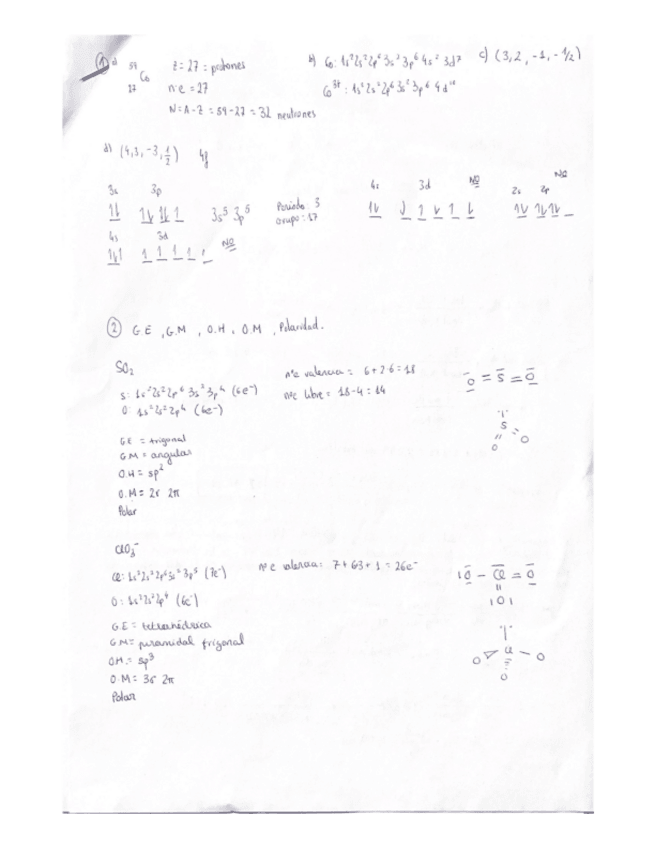 ① a) 59 Co 27 Z = 27 = protones
n·e = 27
N = A - Z = 59 - 27 = 32 neutrones
b) Co: 1s² 2s² 2p⁶ 3s² 3p⁶ 4s² 3d⁷
Co³⁺: 1s² 2s² 2p⁶ 3s² 3p⁶
c) (3, 2, -1, -1/2)
d) (4, 3, -3, 1/2) 4f
3s 3p
3s⁵ 3p⁵ Periodo 3
Grupo: 17
4s 3d NO
2s 2p NO
4s 3d NO
② G.E, G.M, O.H, O.M, Polaridad.
SO₂
S: 1s² 2s² 2p⁶ 3s² 3p⁴ (6e⁻)
O: 1s² 2s² 2p⁴ (6e⁻)
nºe valencia = 6 + 2·6 = 18
nºe libre = 18 - 4 = 14
O = S = O
S
O O
G.E = trigonal
G.M = angular
O.H = sp²
O.M = 2σ 2π
Polar
ClO₃⁻
Cl: 1s² 2s² 2p⁶ 3s² 3p⁵ (7e⁻)
O: 1s² 2s² 2p⁴ (6e⁻)
nºe valencia: 7 + 63 + 1 = 26e⁻
O - Cl = O
O
Cl
O O
O
G.E = tetraédrica
G.M = piramidal trigonal
O.H = sp³
O.M = 3σ 2π
Polar